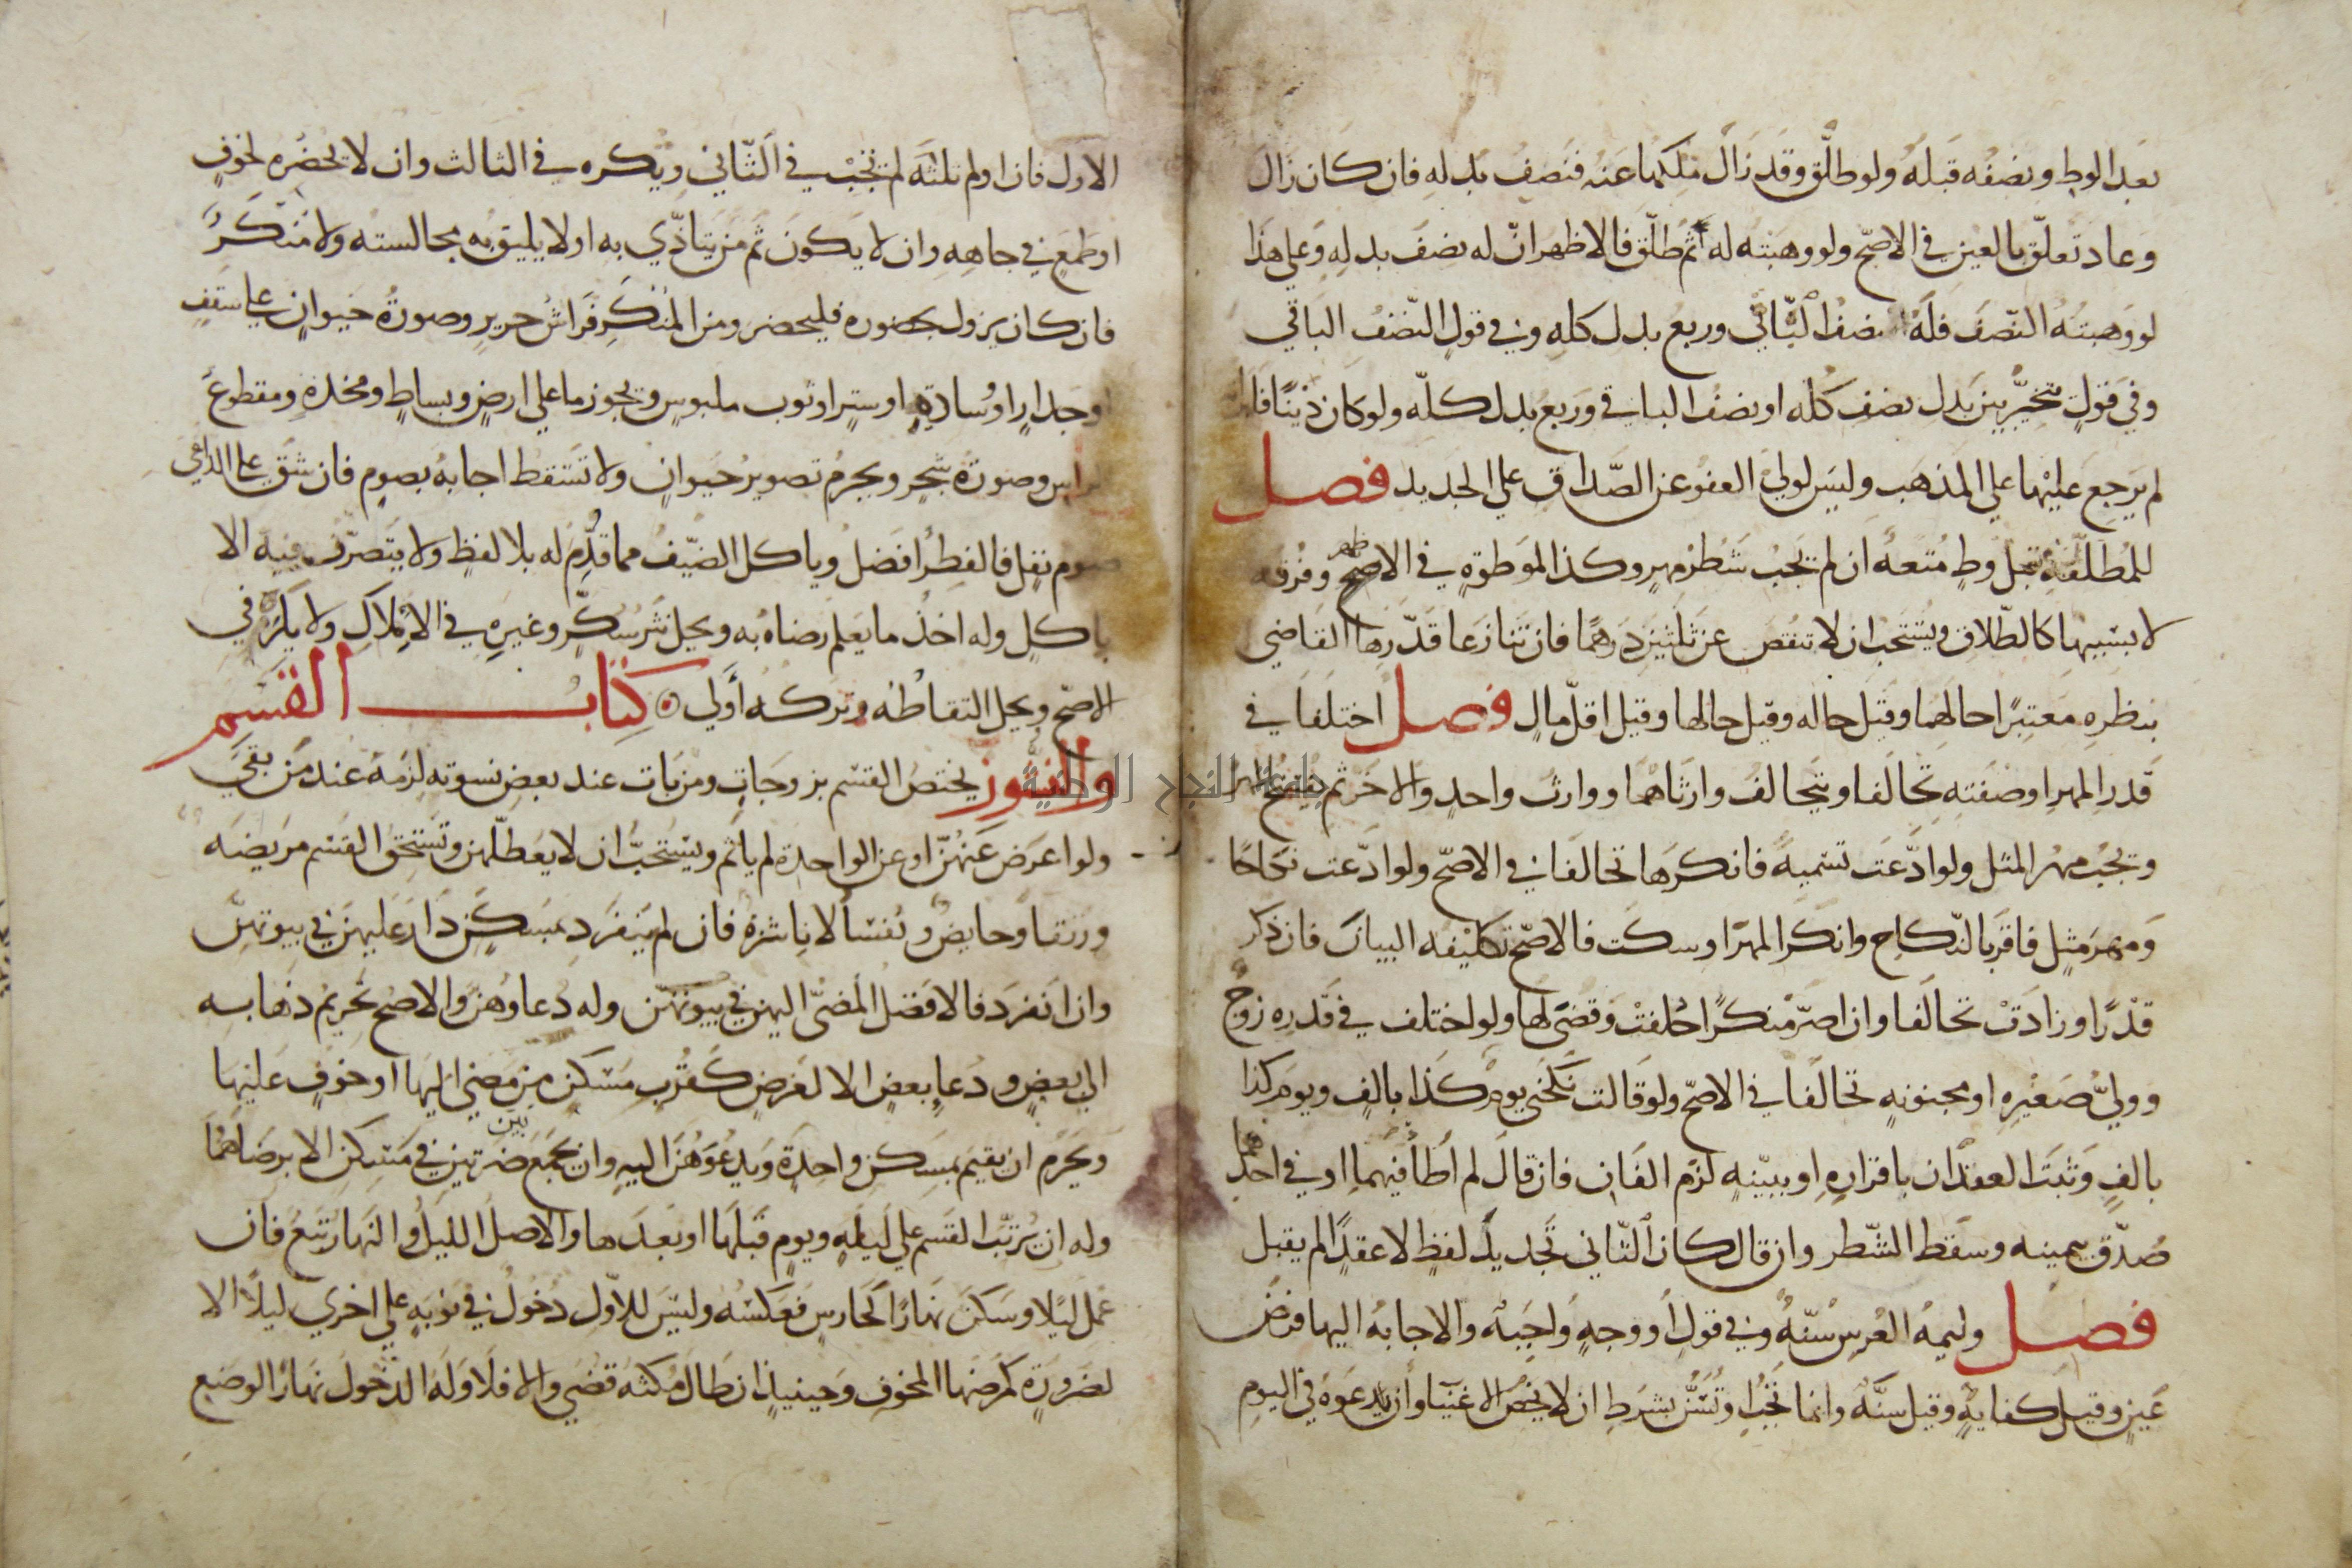 بعد الوطء ونصفه قبله ولو طلّق وقد زال ملكها عنه فنصف بدله فان كان زال
وعاد تعلّق بالعين في الاصحّ ولو وهبته له ثم طلّق فالاظهر انّ له نصف بدله وعلى هذا
لو وهبته النّصف فله نصف الباقي وربع بدل كله وفي قول النّصف الباقي
وفي قول يتخيّر بين بدل نصف كلّه او نصف الباقي وربع بدل كلّه ولو كان دينًا فابرا
لم يرجع عليها على المذهب وليس لولي العفو عن الصّداق على الجديد فصل
للمطلّقة قبل وطء متعة ان لم يجب شطر مهر وكذا الموطوءة في الاظهر وفرقة
لا بسببها كالطّلاق ويستحب ان لا تنقص عن ثلثين درهمًا فان تنازعا قدّرها القاضي
بنظره معتبرًا حالهما وقيل حاله وقيل حالها وقيل اقلّ مال فصل اختلفا في
قدر المهر او صفته تحالفا ويتحالف وارثاهما ووارث واحد والاخر ثم يفسخ المهر
ويجب مهر المثل ولو ادّعت تسمية فانكرها تحالفا في الاصحّ ولو ادّعت نكاحًا
ومهر مثل فاقر بالنّكاح وانكر المهر او سكت فالاصحّ تكليفه البيان فان ذكر
قدْرًا وزادت تحالفا وان اصرّ منكرًا حلفت وقضى لها ولو اختلف في قدره زوج
ووليّ صغيره او مجنونه تحالفا في الاصحّ ولو قالت نكحني يوم كذا بالف ويوم كذا
بالف وثبت العقدان باقراره او ببيّنه لزم الفان فان قال لم أطأ فيهما او في احدهما
صدّق بيمينه وسقط الشّطر وان قال كان الثّاني تجديد لفظ لا عقدًا لم يقبل
فصل وليمة العرس سنّة وفي قول او وجه واجبة والاجابة اليها فرض
عين وقيل كفاية وقيل سنّة وانما تجب او تسنّ بشرط ان لا يخص الاغنيا وأن يدعوه في اليوم
الاول فان اولم ثلثه لم تجب في الثّاني ويكره في الثالث وان لا يحضره لخوف
او طمع في جاهه وان لا يكون ثم من يتاذّي به او لا يليق به مجالسته ولا منكرٌ
فان كان يزول بحضوره فليحضر ومن المنكر فراش حرير وصورة حيوان على سقف
او جدار او وسادة او ستر او ثوب ملبوس ويجوز ما على ارض وبساط ومخدة ومقطوع
الراس وصورة شجر ويحرم تصوير حيوان ولا تسقط اجابة بصوم فان شقّ على الداعي
صوم نفل فالفطر افضل وياكل الضيّف مما قدّم له بلا لفظ ولا يتصرّف فيه الا
باكل وله اخذ ما يعلم رضاه به ويحل نثر سكّر وغيره في الاملاك ولا يكره في
الاصحّ ويحل التقاطه وتركه أولي كتاب القسم
والنشوز يختص القسم بزوجات ومن بات عند بعض نسوته لزمه عند من بقي
ولو اعرض عنهنّ او عن الواحدة لم ياثم ويستحبّ ان لا يعطّلهن وتستحق القسم مريضه
ورتقا وحايض ونفسا لا ناشزة فان لم ينفرد بمسكن دار عليهن في بيوتهنّ
وان انفرد فالافضل المضيّ اليهن في بيوتهنّ وله دعاوهنّ والاصح تحريم ذهابه
الى بعض ودعاء بعض الا لغرض كقرب مسكن من مضى اليها او خوف عليها
ويحرم ان يقيم بمسكن واحدة ويدعوهنّ اليه وان يجمع بين ضرتين في مسكن الا برضاهما
وله ان يرتّب القسم على ليلة ويوم قبلها او بعدها والاصل الليل والنهار تبع فان
عمل ليلًا وسكن نهارًا كحارس فعكسه وليس للأول دخول في نوبة على اخري ليلًا الا
لضرورة كمرضها المخوف وحينيذ ان طال مكثه قضى والا فلا وله الدّخول نهارًا لوضع
جامعة النجاح الوطنية